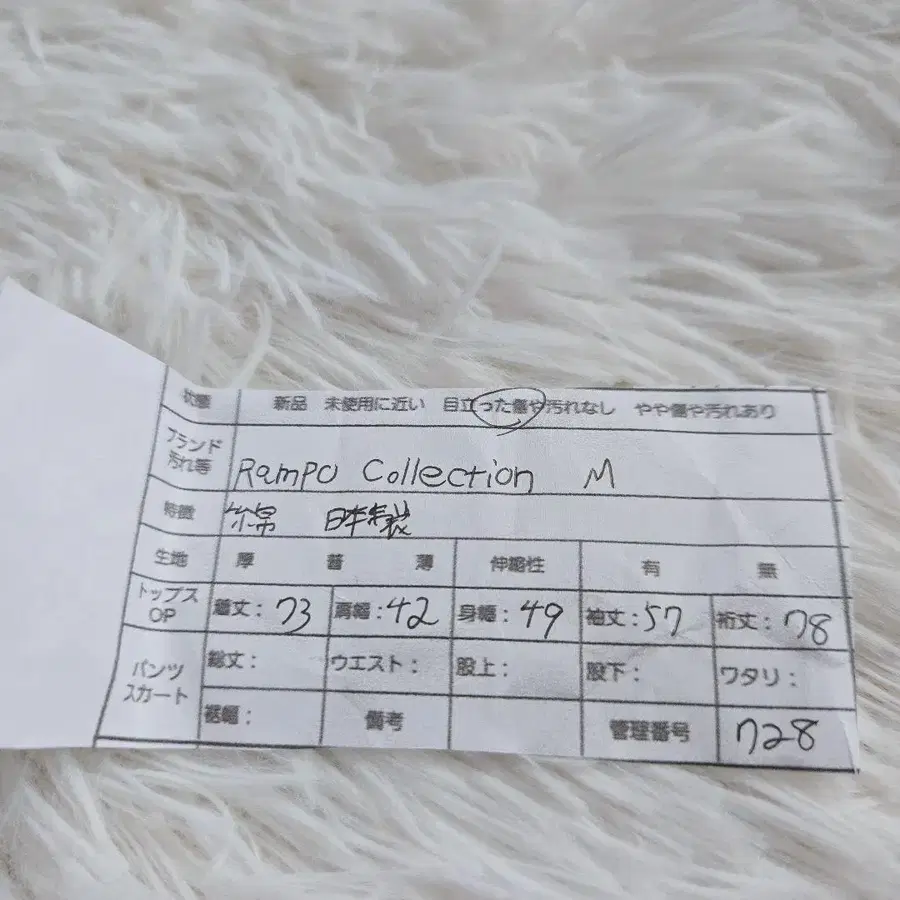 状態 新品 未使用に近い 目立った傷や汚れなし やや傷や汚れあり
ブランド
汚れ等
Rampo Collection M
特徴 綿 日本製
生地 厚 普 薄 伸縮性 有 無
トップス
OP
着丈:73 肩幅:42 身幅:49 袖丈:57 裄丈:78
パンツ
スカート
総丈: ウエスト: 股上: 股下: ワタリ:
裾幅: 備考 管理番号 728